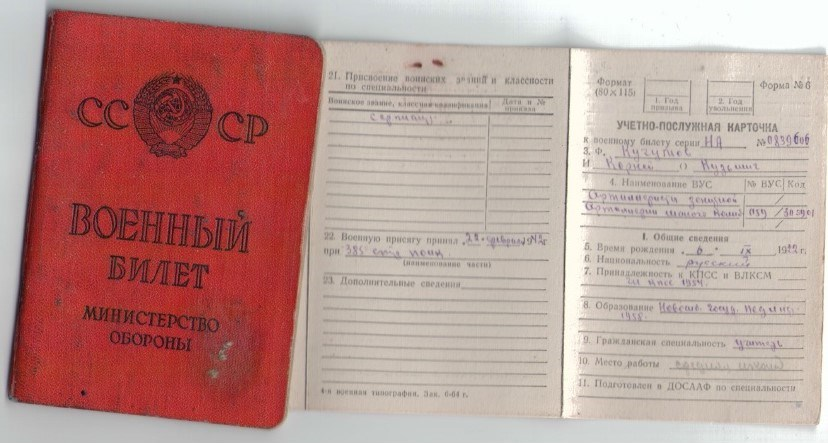 СССР
ВОЕННЫЙ
БИЛЕТ
МИНИСТЕРСТВО
ОБОРОНЫ
21. Присвоение воинских званий и классности
по специальности
Воинское звание, классная квалификация
Дата и №
приказа
сержант
22. Военную присягу принял 22 февраля 1942 г.
при 385 стр. полк.
(наименование части)
23. Дополнительные сведения
4-я военная типография. Зак. 6-64 г.
Формат
(80×115)
1. Год
призыва
2. Год
увольнения
Форма № 6
УЧЕТНО-ПОСЛУЖНАЯ КАРТОЧКА
к военному билету серия НА № 0839606
3. Ф.
И. О. Кузьмич
4. Наименование ВУС № ВУС Код
артиллерии
I. Общие сведения
5. Время рождения 6 IX 1922 г.
6. Национальность русский
7. Принадлежность к КПСС и ВЛКСМ
чл. КПСС 1954
8. Образование
9. Гражданская специальность учитель
10. Место работы средняя школа
11. Подготовлен в ДОСААФ по специальности